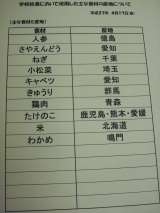 学校給食において使用した主な食材の産地について
平成23年 4月27日(水)
(主な食材と産地)
食材 産地
人参 徳島
さやえんどう 愛知
ねぎ 千葉
小松菜 埼玉
キャベツ 愛知
きゅうり 群馬
鶏肉 青森
たけのこ 鹿児島・熊本・愛媛
米 北海道
わかめ 鳴門